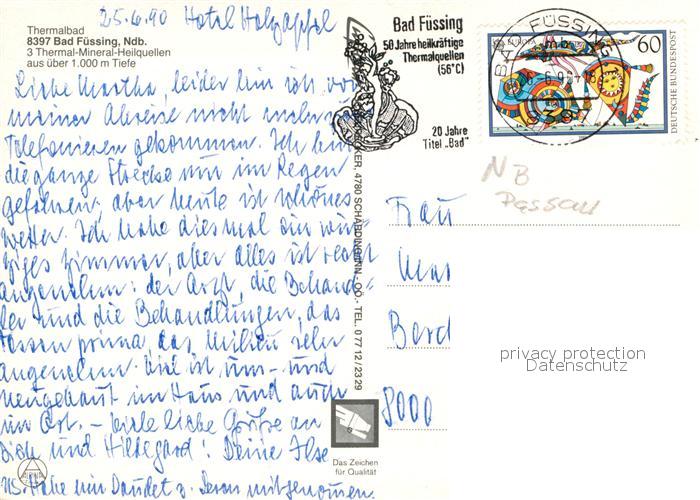 25.6.90 Hotel Holzapfel
Thermalbad
8397 Bad Füssing, Ndb.
3 Thermal-Mineral-Heilquellen
aus über 1.000 m Tiefe
Liebe Martha, leider bin ich vor
meiner Abreise nicht mehr z.
Telefonieren gekommen. Ich bin
die ganze Strecke nur im Regen
gefahren, aber heute ist schönes
Wetter. Ich habe diesmal ein win-
ziges Zimmer, aber alles ist recht
angenehm: der Arzt, die Behand-
ler und die Behandlungen, das
Essen prima, das Milieu sehr
angenehm. Viel ist um- und
neugebaut im Haus und auch
im Ort. – Viele liebe Grüße an
Dich und Hildegard! Deine Ilse
NS. Habe mir Daudet z. Lesen mitgenommen.
Bad Füssing
50 Jahre heilkräftige
Thermalquellen
(56°C)
20 Jahre
Titel „Bad"
BAD FÜSSING
EUROPA
60
DEUTSCHE BUNDESPOST
NB
Passau
4780 SCHÄRDING/INN - OÖ. - TEL. 0 77 12 / 23 29
Frau
Bord
8000
privacy protection
Datenschutz
Das Zeichen
für Qualität